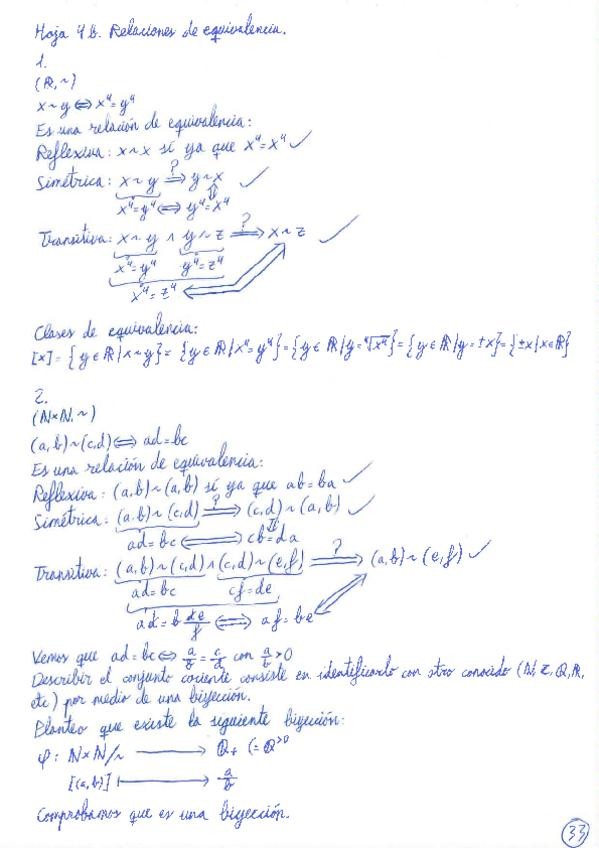 Hoja 4b. Relaciones de equivalencia.
1.
(ℝ, ~)
x ~ y ⟺ x⁴ = y⁴
Es una relación de equivalencia:
Reflexiva: x ~ x sí ya que x⁴ = x⁴ ✓
Simétrica: x ~ y ⟹? y ~ x ✓
x⁴ = y⁴ ⟺ y⁴ = x⁴
Transitiva: x ~ y ∧ y ~ z ⟹? x ~ z ✓
x⁴ = y⁴ y⁴ = z⁴
x⁴ = z⁴
Clases de equivalencia:
[x] = {y ∈ ℝ | x ~ y} = {y ∈ ℝ | x⁴ = y⁴} = {y ∈ ℝ | y = ⁴√x⁴} = {y ∈ ℝ | y = ±x} = {±x | x ∈ ℝ}
2.
(ℕ×ℕ, ~)
(a,b) ~ (c,d) ⟺ ad = bc
Es una relación de equivalencia:
Reflexiva: (a,b) ~ (a,b) sí ya que ab = ba ✓
Simétrica: (a,b) ~ (c,d) ⟹? (c,d) ~ (a,b) ✓
ad = bc ⟺ cb = da
Transitiva: (a,b) ~ (c,d) ∧ (c,d) ~ (e,f) ⟹? (a,b) ~ (e,f) ✓
ad = bc cf = de
ad = b de/f ⟺ af = be
Vemos que ad = bc ⟺ a/b = c/d con a/b > 0
Describir el conjunto cociente consiste en identificarlo con otro conocido (ℕ, ℤ, ℚ, ℝ,
etc) por medio de una biyección.
Planteo que existe la siguiente biyección:
φ: ℕ×ℕ/~ ⟶ ℚ₊ (= ℚ^{>0}
[(a,b)] ⟼ a/b
Comprobamos que es una biyección.
33